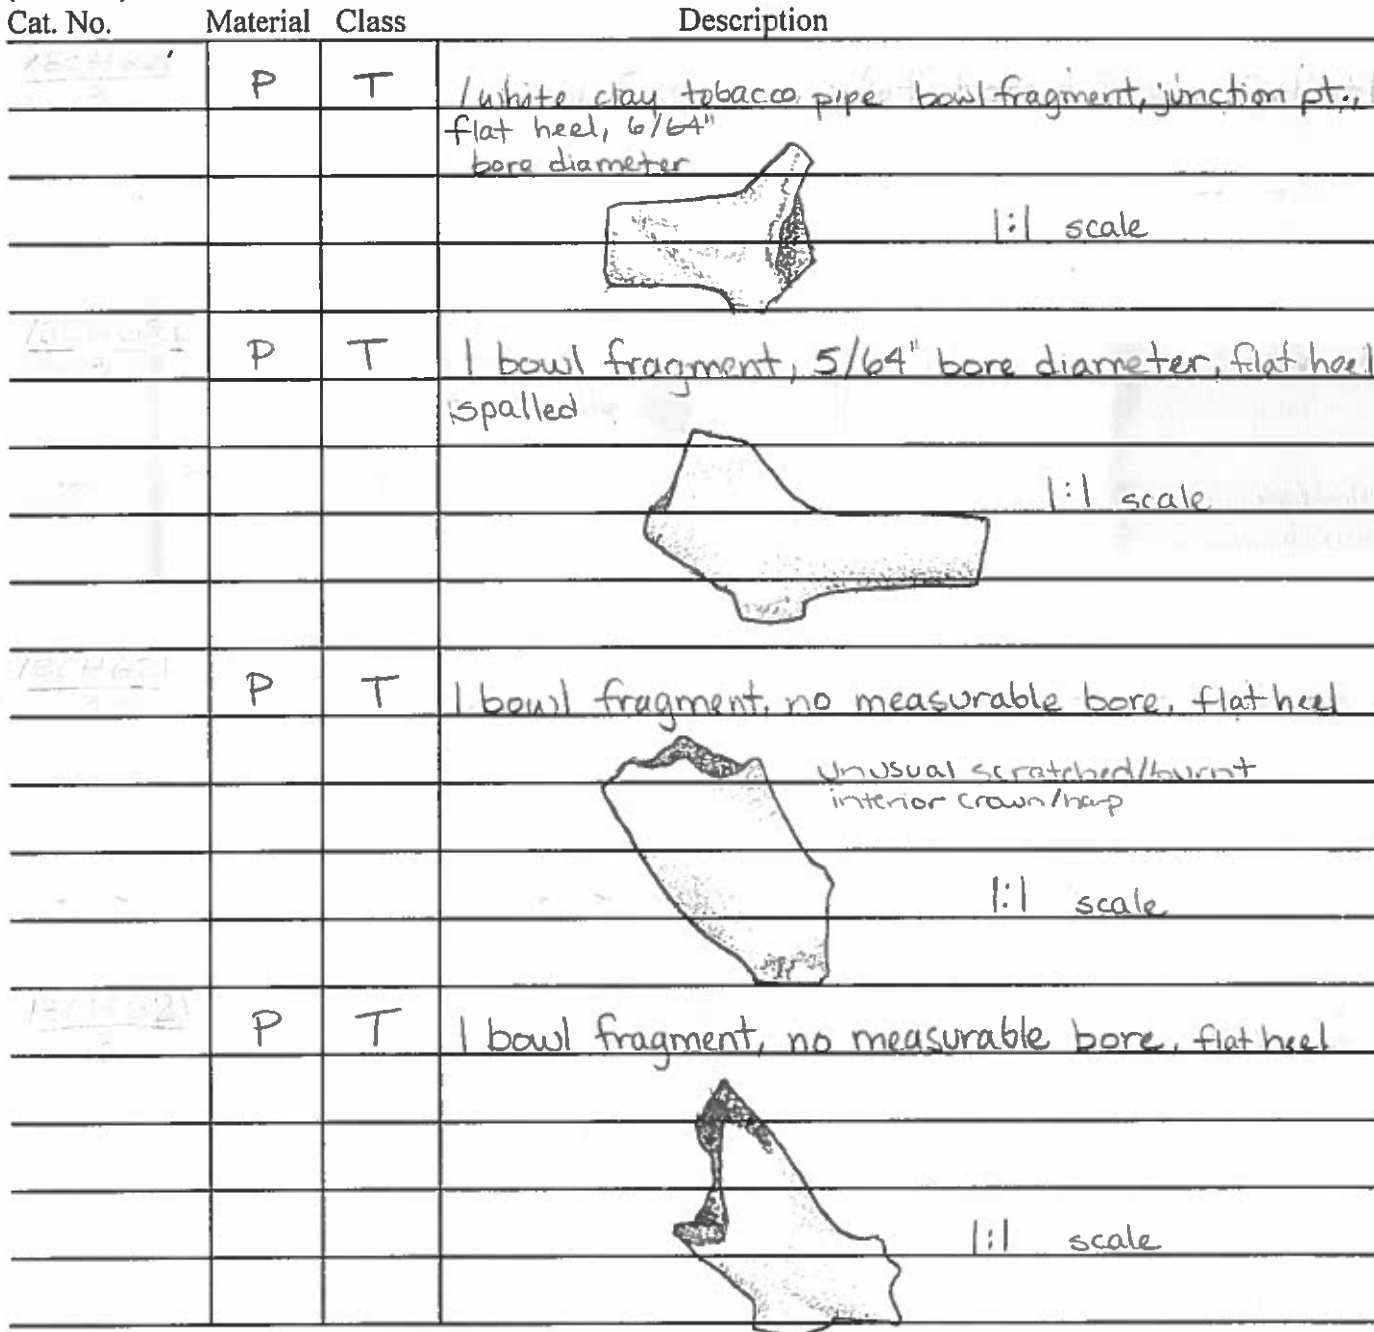 Cat. No. Material Class Description
P T 1 white clay tobacco pipe bowl fragment, junction pt.,
flat heel, 6/64"
bore diameter
1:1 scale
P T 1 bowl fragment, 5/64" bore diameter, flat heel
spalled
1:1 scale
P T 1 bowl fragment, no measurable bore, flat heel
unusual scratched/burnt
interior crown/harp
1:1 scale
P T 1 bowl fragment, no measurable bore, flat heel
1:1 scale